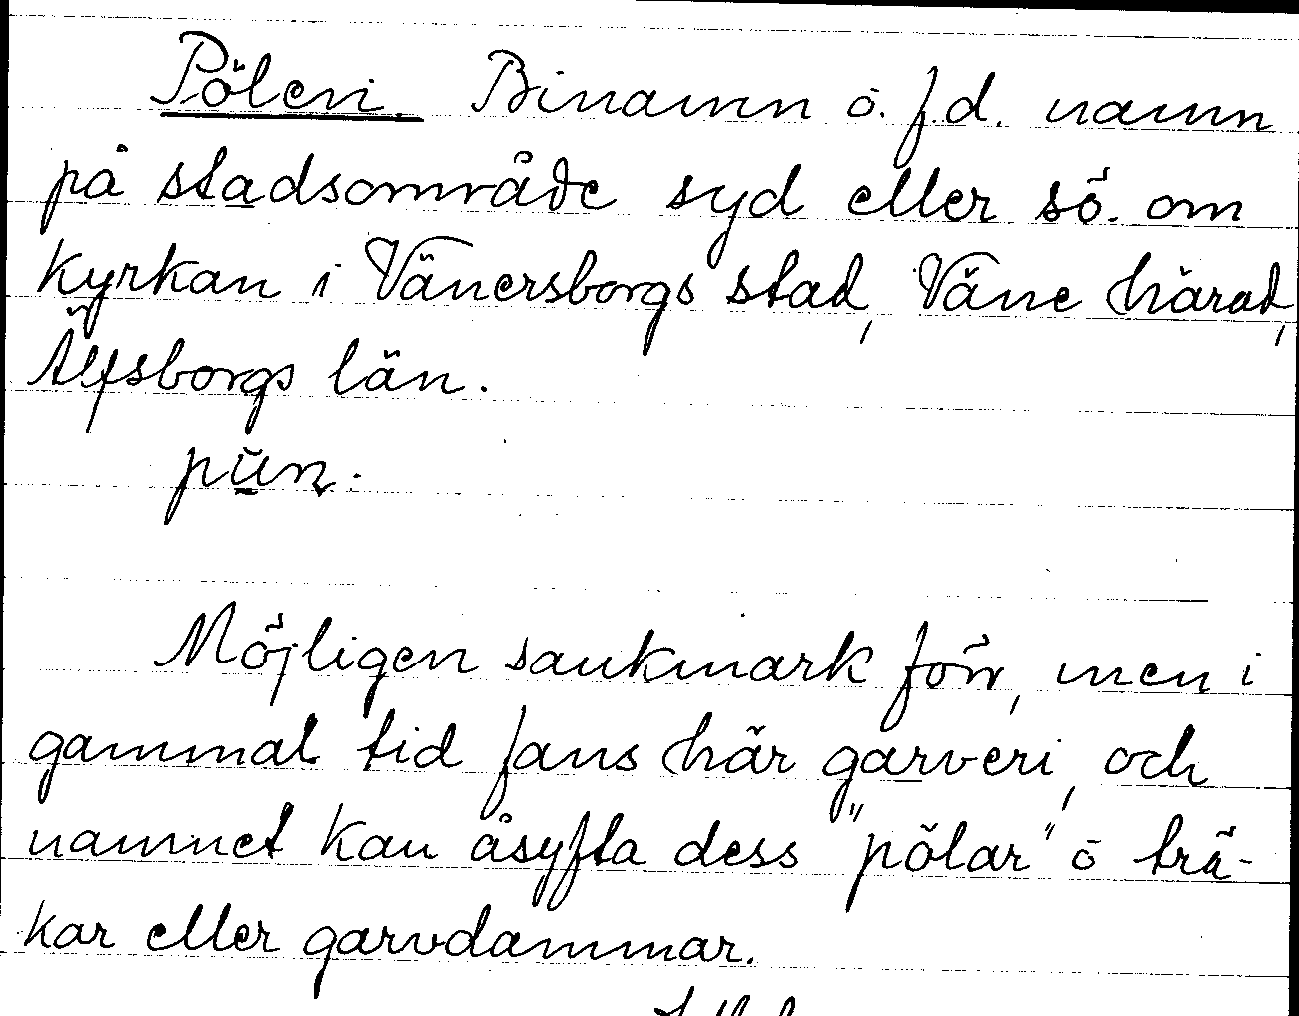 Pölen. Binamn o. f.d. namn
på stadsområde syd eller sö. om
kyrkan i Vänersborgs stad, Väne härad,
Älfsborgs län.
Möjligen sankmark förr, men i
gammal tid fans här garveri, och
namnet kan åsyfta dess "pölar" o trä-
kar eller garvdammar.